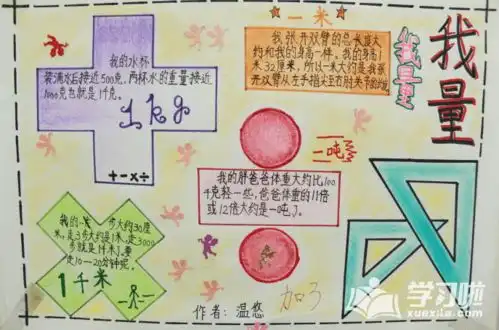 我量
我量
一米
我张开双臂的总长度大
约和我的身高一样，我的身高1
米32厘米，所以一米大约是我张
开双臂从左手指尖至右肘关节的
我的水杯
装满水后接近500克，两杯水的重量接近
1000克也就是1千克。
1kg
+-×÷
一吨
我的胖爸爸体重大约比100
千克轻一些，爸爸体重的11倍
或12倍大约是一吨了。
我的一步大约30厘
米，走3步大约是1米，走3000
步就是1千米了。要
走10—20分钟呢。
1千米
作者：温悠
学习啦
xuexila.com